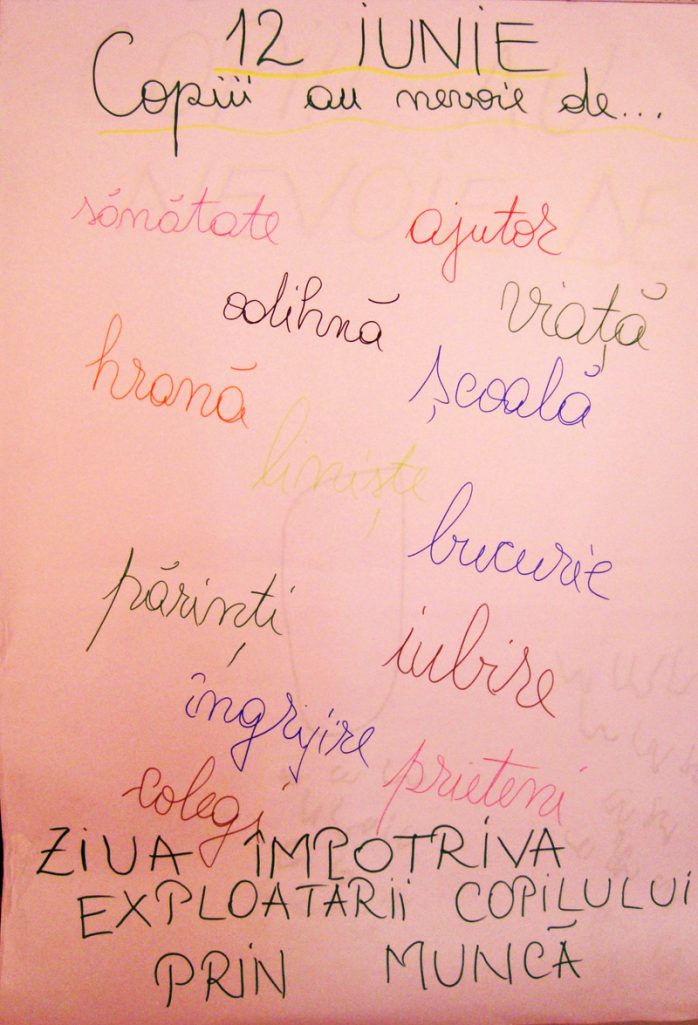 12 IUNIE
Copiii au nevoie de...
sănătate
ajutor
odihnă
viață
hrană
școală
liniște
bucurie
părinți
iubire
îngrijire
prieteni
colegi
ZIUA ÎMPOTRIVA
EXPLOATĂRII COPILULUI
PRIN MUNCĂ